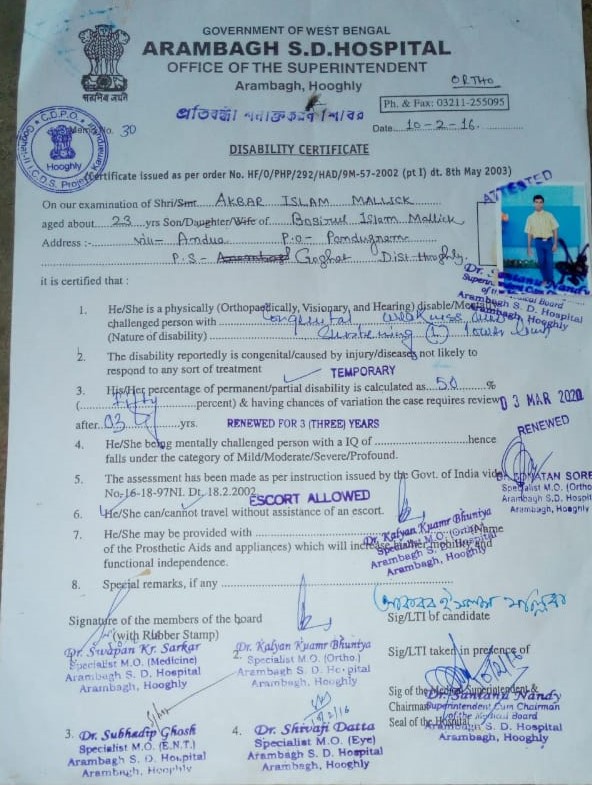 GOVERNMENT OF WEST BENGAL
ARAMBAGH S.D.HOSPITAL
OFFICE OF THE SUPERINTENDENT
Arambagh, Hooghly
ORTHO
Ph. & Fax: 03211-255095
C.D.P.O.
Hooghly
Memo No. 30
Date 10-2-16.
DISABILITY CERTIFICATE
(Certificate issued as per order No. HF/O/PHP/292/HAD/9M-57-2002 (pt I) dt. 8th May 2003)
ATTESTED
On our examination of Shri/Smt. AKBAR ISLAM MALLICK
aged about 23 yrs Son/Daughter/Wife of Basirul Islam Mallick
Address :- Vill- Andua P.O- Pandugram
P.S- Goghat Dist. Hooghly.
Dr. Santanu Nandy
Arambagh S. D. Hospital
Arambagh, Hooghly
it is certified that :
1. He/She is a physically (Orthopaedically, Visionary, and Hearing) disable/Mentally
challenged person with Congenital weakness and
(Nature of disability) shortening (L) lower limb
2. The disability reportedly is congenital/caused by injury/diseases not likely to
respond to any sort of treatment
TEMPORARY
3. His/Her percentage of permanent/partial disability is calculated as 50 %
(Fifty percent) & having chances of variation the case requires review
03 MAR 2020
after 03 yrs. RENEWED FOR 3 (THREE) YEARS
RENEWED
4. He/She being mentally challenged person with a IQ of hence
falls under the category of Mild/Moderate/Severe/Profound.
5. The assessment has been made as per instruction issued by the Govt. of India vide
No.-16-18-97NI. Dt. 18.2.2002.
ESCORT ALLOWED
Specialist M.O. (Ortho)
Arambagh S.D. Hospital
Arambagh, Hooghly
6. He/She can/cannot travel without assistance of an escort.
7. He/She may be provided with (Name
of the Prosthetic Aids and appliances) which will increase his/her mobility and
functional independence.
Dr. Kalyan Kuamr Bhuniya
Specialist M.O. (Ortho)
Arambagh S. D. Hospital
Arambagh, Hooghly
8. Special remarks, if any
আকবর ইসলাম মল্লিক
Signature of the members of the board
(with Rubber Stamp)
Sig/LTI of candidate
Dr. Swapan Kr. Sarkar
Specialist M.O. (Medicine)
Arambagh S. D. Hospital
Arambagh, Hooghly
2. Dr. Kalyan Kuamr Bhuniya
Specialist M.O. (Ortho.)
Arambagh S. D. Hospital
Arambagh, Hooghly
Sig/LTI taken in presence of
10/2/16
Sig of the Medical Superintendent &
Chairman
Seal of the Hospital
Dr. Santanu Nandy
Superintendent Cum Chairman
of the Medical Board
Arambagh S. D. Hospital
Arambagh, Hooghly
3. Dr. Subhadip Ghosh
Specialist M.O. (E.N.T.)
Arambagh S. D. Hospital
Arambagh, Hooghly
10/2/16
4. Dr. Shivaji Datta
Specialist M.O. (Eye)
Arambagh S. D. Hospital
Arambagh, Hooghly